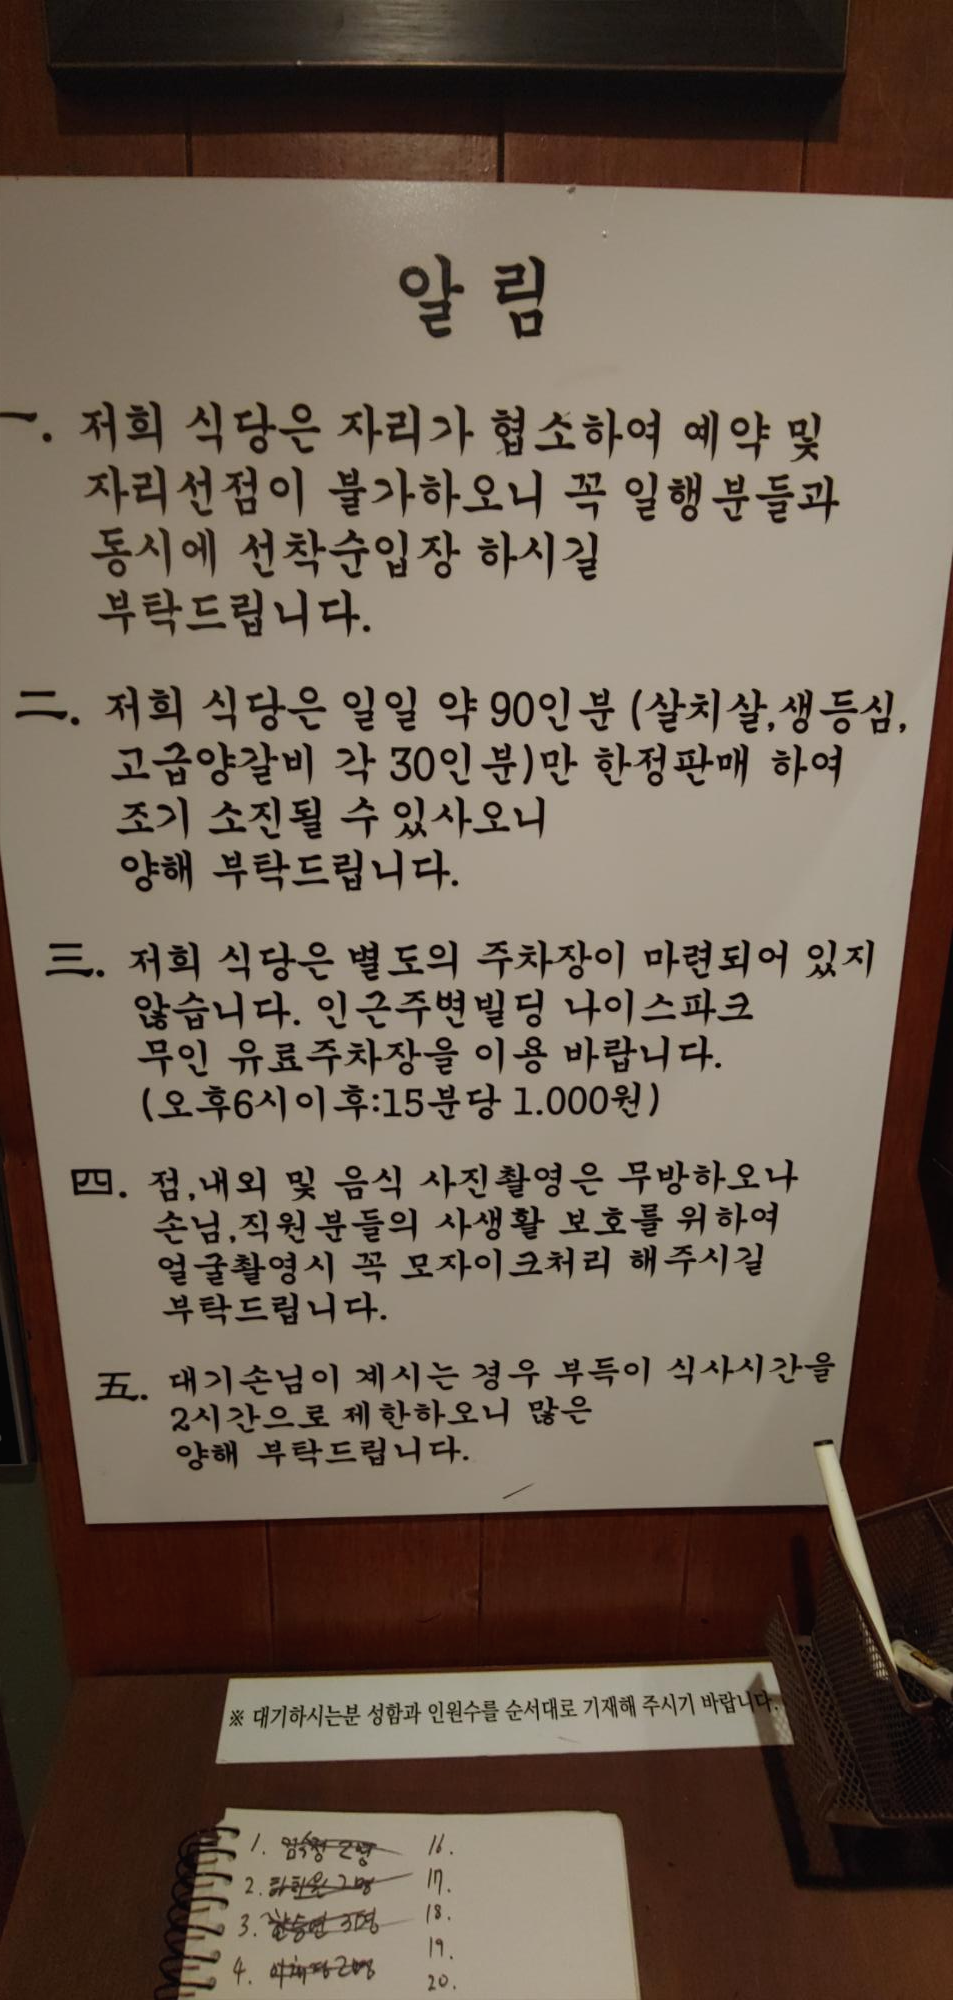 알림
一. 저희 식당은 자리가 협소하여 예약 및
자리선점이 불가하오니 꼭 일행분들과
동시에 선착순입장 하시길
부탁드립니다.
二. 저희 식당은 일일 약 90인분 (살치살,생등심,
고급양갈비 각 30인분)만 한정판매 하여
조기 소진될 수 있사오니
양해 부탁드립니다.
三. 저희 식당은 별도의 주차장이 마련되어 있지
않습니다. 인근주변빌딩 나이스파크
무인 유료주차장을 이용 바랍니다.
(오후6시이후:15분당 1.000원)
四. 점,내외 및 음식 사진촬영은 무방하오나
손님,직원분들의 사생활 보호를 위하여
얼굴촬영시 꼭 모자이크처리 해주시길
부탁드립니다.
五. 대기손님이 계시는 경우 부득이 식사시간을
2시간으로 제한하오니 많은
양해 부탁드립니다.
※ 대기하시는분 성함과 인원수를 순서대로 기재해 주시기 바랍니다.
1. 16.
2. 17.
3. 18.
19.
4. 20.